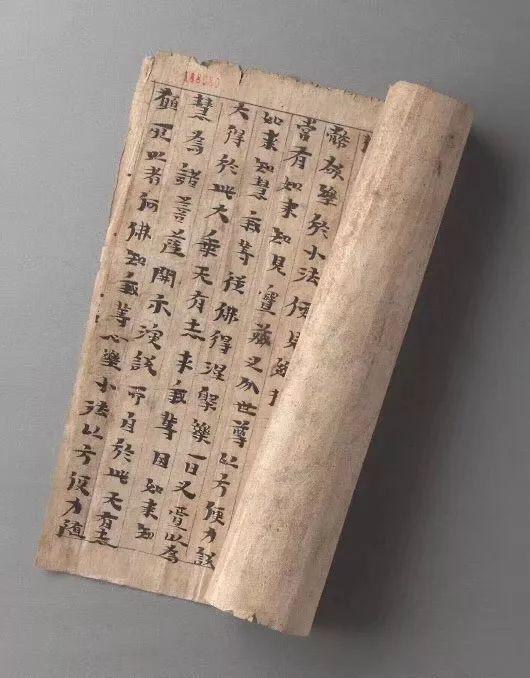 弊欲樂於小法便見
當有如来知見寶藏之分世尊以方便力說
如来知慧我等從佛得涅槃一日之賈以為
大得於此大乘无有志求我等因如来知
慧為諸菩薩開示演說而自於此无有志
願所以者何佛知我等心樂小法以方便力隨